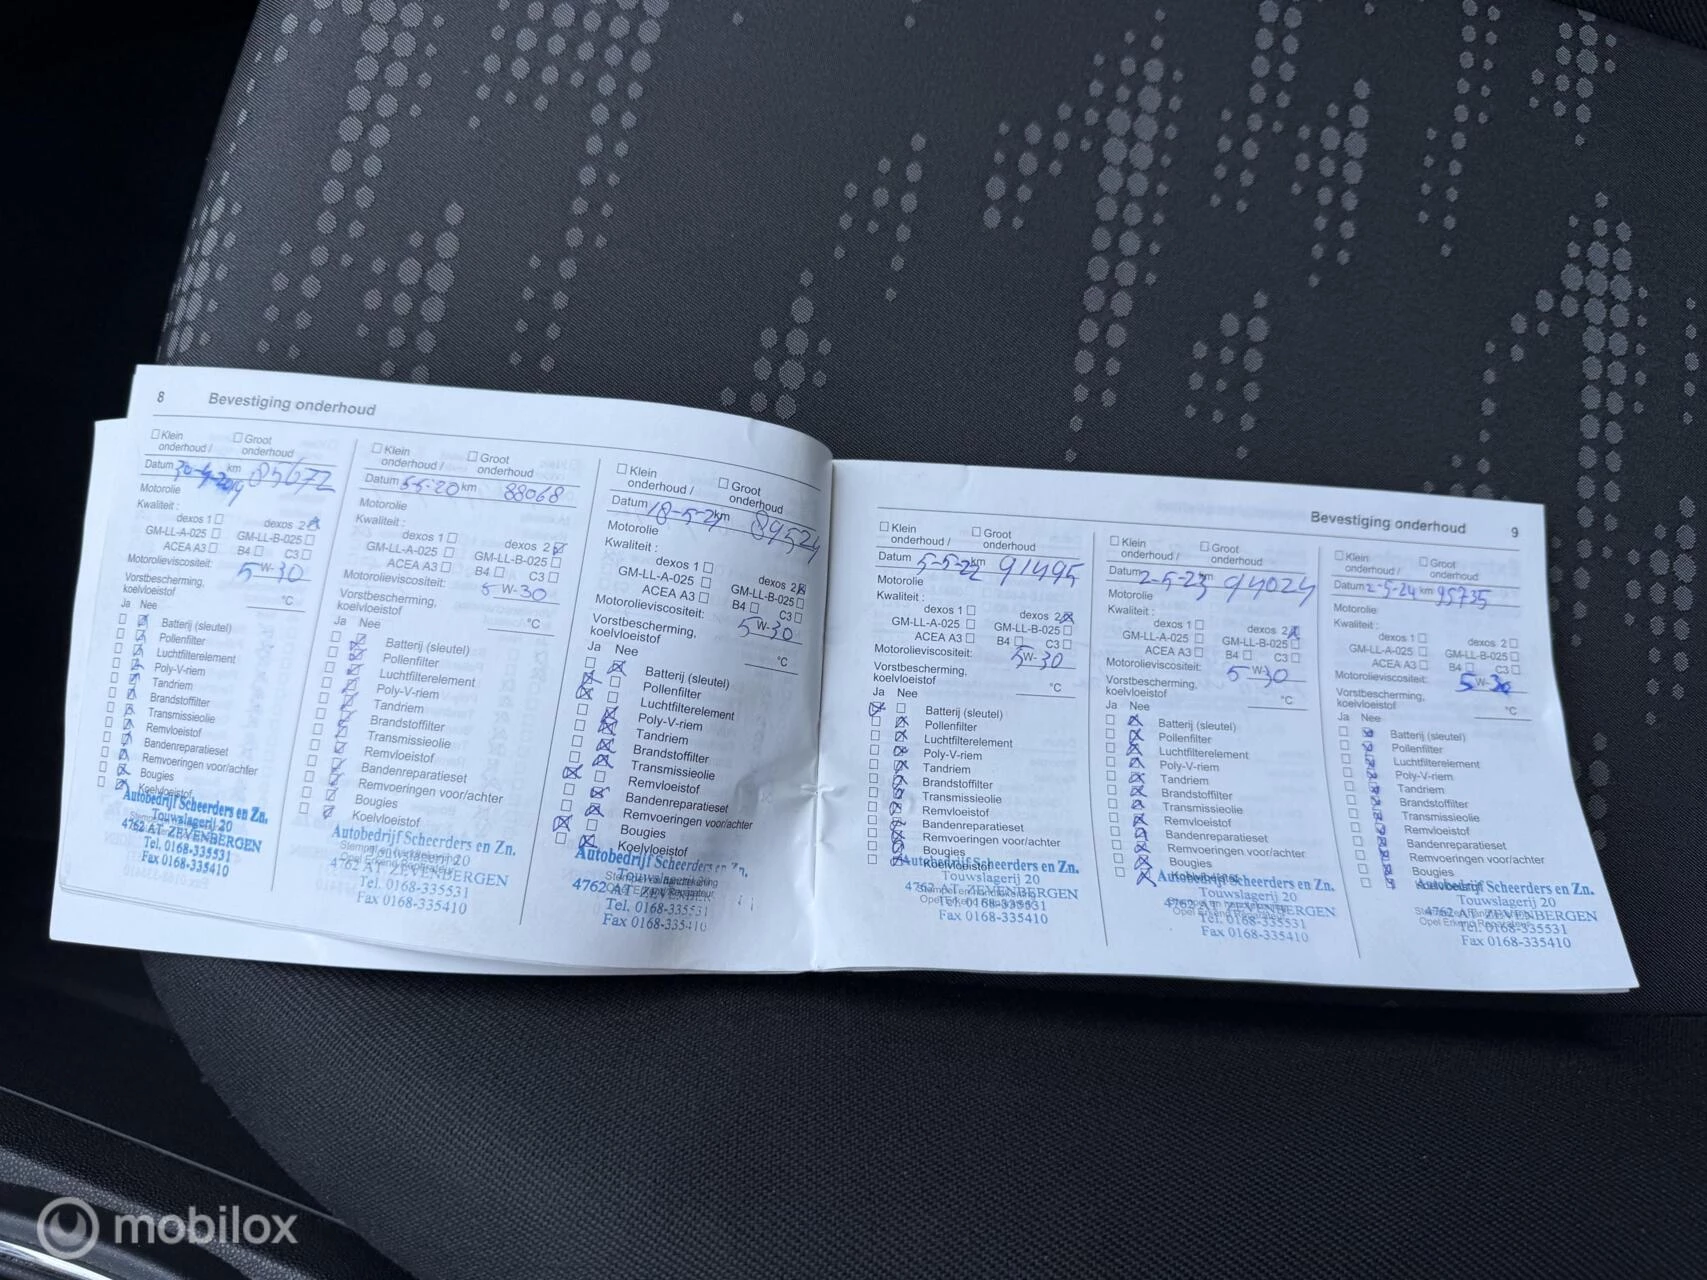 8 Bevestiging onderhoud
Klein onderhoud / Groot onderhoud
Datum 30-4-2019 km 85672
Motorolie
Kwaliteit :
dexos 1 dexos 2
GM-LL-A-025 GM-LL-B-025
ACEA A3 B4 C3
Motorolieviscositeit: 5 W-30
Vorstbescherming, koelvloeistof °C
Ja Nee
Batterij (sleutel)
Pollenfilter
Luchtfilterelement
Poly-V-riem
Tandriem
Brandstoffilter
Transmissieolie
Remvloeistof
Bandenreparatieset
Remvoeringen voor/achter
Bougies
Koelvloeistof
Autobedrijf Scheerders en Zn.
Touwslagerij 20
4762 AT ZEVENBERGEN
Tel. 0168-335531
Fax 0168-335410
Klein onderhoud / Groot onderhoud
Datum 5-5-20 km 88068
Motorolie
Kwaliteit :
dexos 1 dexos 2
GM-LL-A-025 GM-LL-B-025
ACEA A3 B4 C3
Motorolieviscositeit: 5 W-30
Vorstbescherming, koelvloeistof °C
Ja Nee
Batterij (sleutel)
Pollenfilter
Luchtfilterelement
Poly-V-riem
Tandriem
Brandstoffilter
Transmissieolie
Remvloeistof
Bandenreparatieset
Remvoeringen voor/achter
Bougies
Koelvloeistof
Autobedrijf Scheerders en Zn.
Touwslagerij 20
4762 AT ZEVENBERGEN
Tel. 0168-335531
Fax 0168-335410
Klein onderhoud / Groot onderhoud
Datum 18-5-21 km 89524
Motorolie
Kwaliteit :
dexos 1 dexos 2
GM-LL-A-025 GM-LL-B-025
ACEA A3 B4 C3
Motorolieviscositeit: 5 W-30
Vorstbescherming, koelvloeistof °C
Ja Nee
Batterij (sleutel)
Pollenfilter
Luchtfilterelement
Poly-V-riem
Tandriem
Brandstoffilter
Transmissieolie
Remvloeistof
Bandenreparatieset
Remvoeringen voor/achter
Bougies
Koelvloeistof
Autobedrijf Scheerders en Zn.
Touwslagerij 20
4762 AT ZEVENBER
Tel. 0168-335531
Fax 0168-335410
Bevestiging onderhoud 9
Klein onderhoud / Groot onderhoud
Datum 5-5-22 km 91495
Motorolie
Kwaliteit :
dexos 1 dexos 2
GM-LL-A-025 GM-LL-B-025
ACEA A3 B4 C3
Motorolieviscositeit: 5 W-30
Vorstbescherming, koelvloeistof °C
Ja Nee
Batterij (sleutel)
Pollenfilter
Luchtfilterelement
Poly-V-riem
Tandriem
Brandstoffilter
Transmissieolie
Remvloeistof
Bandenreparatieset
Remvoeringen voor/achter
Bougies
Koelvloeistof
Autobedrijf Scheerders en Zn.
Touwslagerij 20
4762 AT ZEVENBERGEN
Tel. 0168-335531
Fax 0168-335410
Klein onderhoud / Groot onderhoud
Datum 2-5-23 km 94024
Motorolie
Kwaliteit :
dexos 1 dexos 2
GM-LL-A-025 GM-LL-B-025
ACEA A3 B4 C3
Motorolieviscositeit: 5 W-30
Vorstbescherming, koelvloeistof °C
Ja Nee
Batterij (sleutel)
Pollenfilter
Luchtfilterelement
Poly-V-riem
Tandriem
Brandstoffilter
Transmissieolie
Remvloeistof
Bandenreparatieset
Remvoeringen voor/achter
Bougies
Koelvloeistof
Autobedrijf Scheerders en Zn.
Touwslagerij 20
4762 AT ZEVENBERGEN
Tel. 0168-335531
Fax 0168-335410
Klein onderhoud / Groot onderhoud
Datum 2-5-24 km 95735
Motorolie
Kwaliteit :
dexos 1 dexos 2
GM-LL-A-025 GM-LL-B-025
ACEA A3 B4 C3
Motorolieviscositeit: 5 W-30
Vorstbescherming, koelvloeistof °C
Ja Nee
Batterij (sleutel)
Pollenfilter
Luchtfilterelement
Poly-V-riem
Tandriem
Brandstoffilter
Transmissieolie
Remvloeistof
Bandenreparatieset
Remvoeringen voor/achter
Bougies
Koelvloeistof
Autobedrijf Scheerders en Zn.
Touwslagerij 20
4762 AT ZEVENBERGEN
Tel. 0168-335531
Fax 0168-335410
mobilox